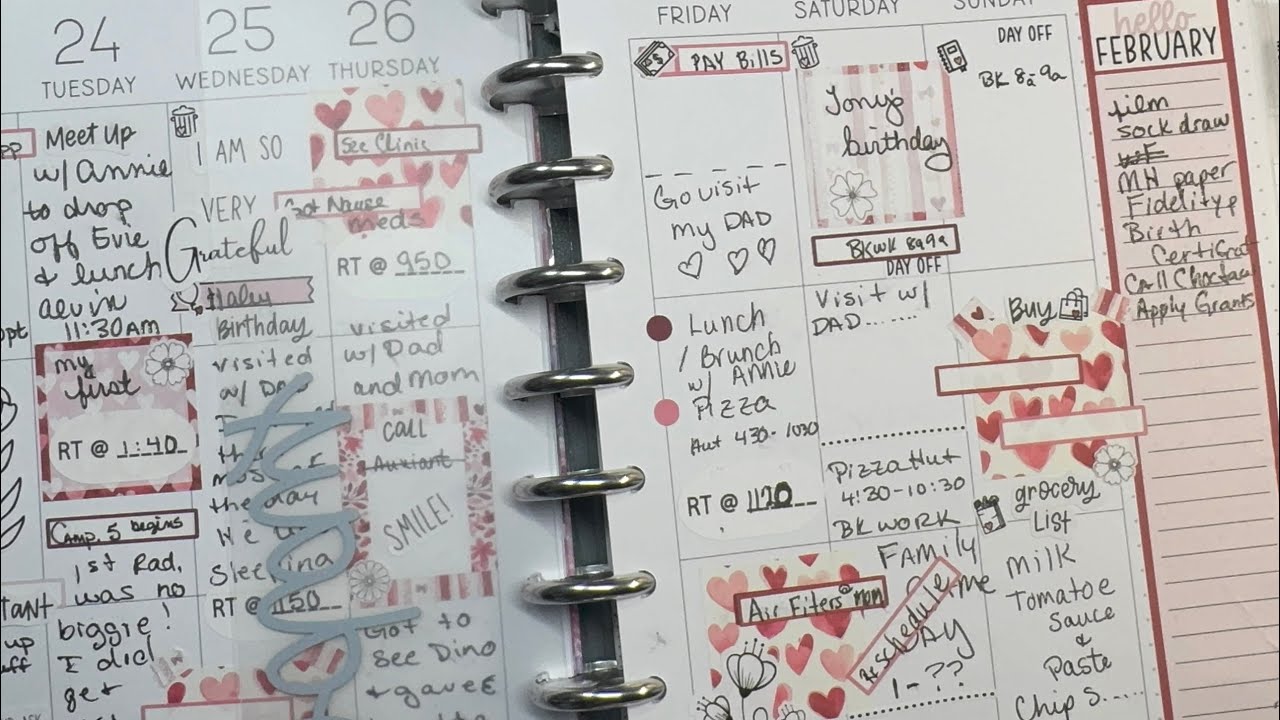 24
TUESDAY
Meet Up
w/ Annie
to drop
off Evie
& lunch
alvin
11:30AM
my
first
RT @ 1:40
Camp. 5 begins
1st Rad,
was no
biggie!
I did
get
25
WEDNESDAY
I AM SO
VERY
Grateful
Haley
Birthday
visited
w/ Da
the day
Sleeping
RT @ 150
26
THURSDAY
See Clinic
Got Nause
meds
RT @ 950
visited
w/ Dad
and Mom
CALL
Auxiant
SMILE!
Got to
See Dino
& gave E
FRIDAY
PAY Bills
Go visit
my DAD
Lunch
/ Brunch
w/ Annie
Pizza
Hut 430-1030
RT @ 1120
Air Filters @ mom
SATURDAY
Tony's
birthday
BKWK 8a9a
DAY OFF
Visit w/
DAD......
Pizza Hut
4:30-10:30
BK WORK
FAMILY
Game
DAY
Reschedule
1-??
SUNDAY
DAY OFF
BK 8a-9a
Buy
grocery
LIST
Milk
Tomatoe
Sauce
&
Paste
Chips....
hello
FEBRUARY
film
sock draw
MN paper
Fidelity
Birth
Certificat
Call Choctaw
Apply Grants